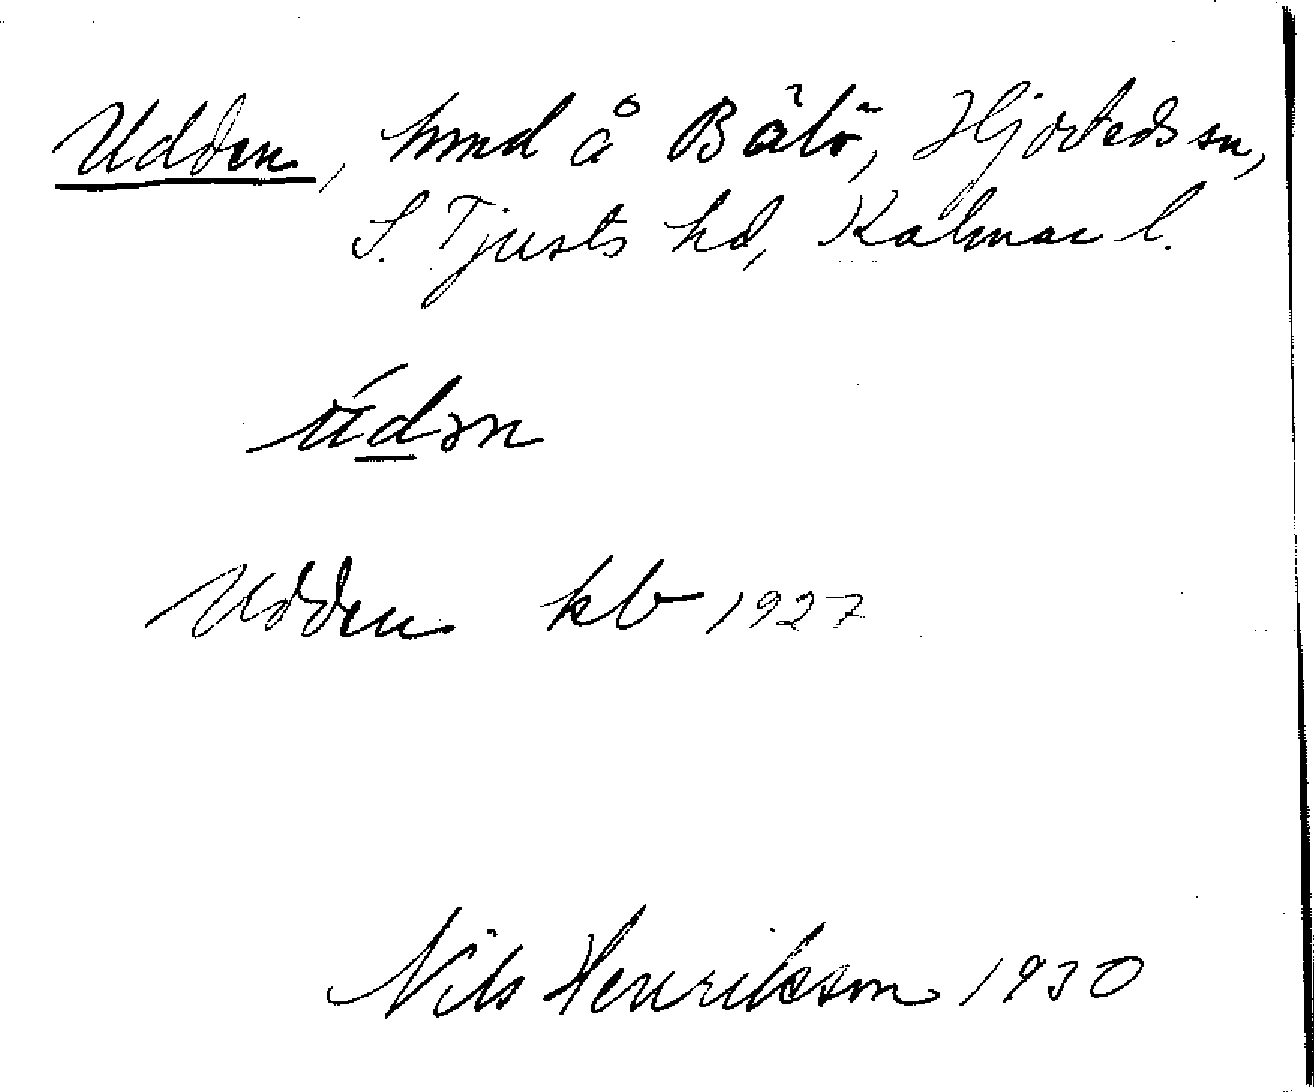 Udden, hmd å Bälö, Hjorteds sn,
S. Tjusts hd, Kalmar l.
údən
Udden kb 1927
Nils Henrikson 1930